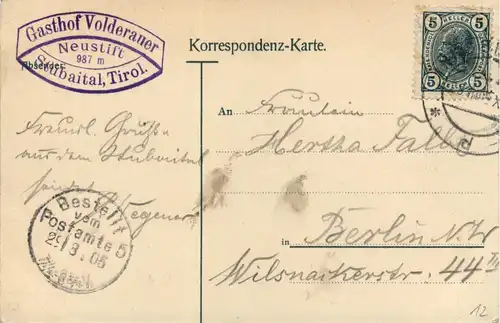 Gasthof Volderauer
Neustift
987 m
Stubaital, Tirol.
Absender:
Korrespondenz-Karte.
5 HELLER 5
5 5
An Fräulein
Hertha Falb
in Berlin N.W
Wilsnackerstr. 44
Freundl. Grüße
aus dem Stubaital
sendet Wegener
Bestellt
vom
Postamte 5
29/3.05
12